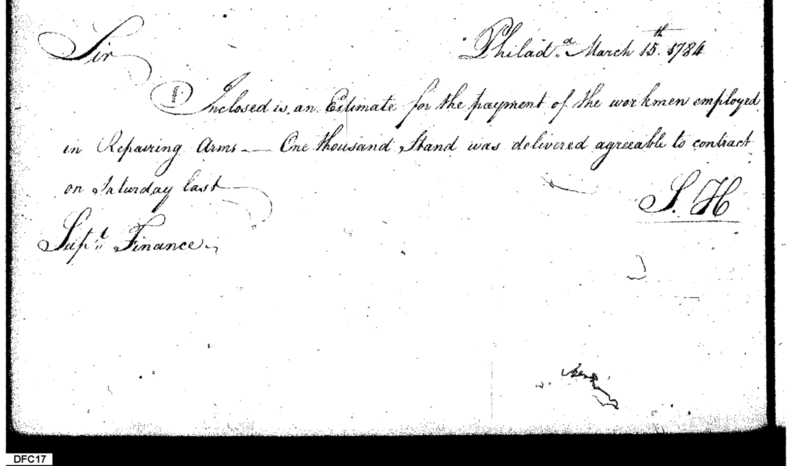 Philad.ª March 15.th 1784
Sir
Inclosed is an Estimate for the payment of the workmen employed
in Repairing Arms — One thousand Stand was delivered agreeable to contract
on Saturday last
S. H
Sup.t Finance
DFC17